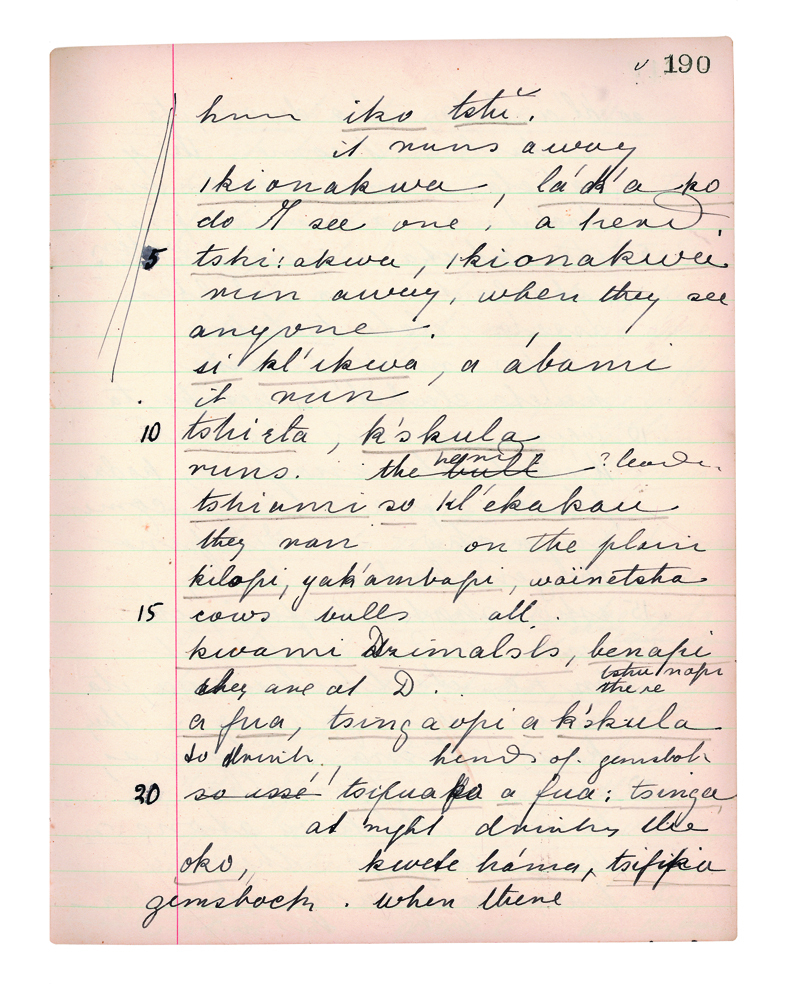 190
hun iko tshi.
it runs away
ikionakwa, lá k'a ko
do I see one, a herd.
5 tshi:akwa, ikionakwa
run away, when they see
anyone.
si kl'ikwa, a ábami
it run
10 tshiela, k'skula
runs. the herd bull ? leader
tshiami so kl'ekakau
they run on the plain
kilapi, yak'ambapi, wainetsha
15 cows bulls all.
kwami Dzimalsls, benapi
they are at D. tshunapi there
a fua, tsingaopi a k'skula
to drink, herds of gemsbok
20 so ussé tsifuapa a fua: tsinga
at night drinks the
oko, kwete háma, tsifika
gemsbock. when there